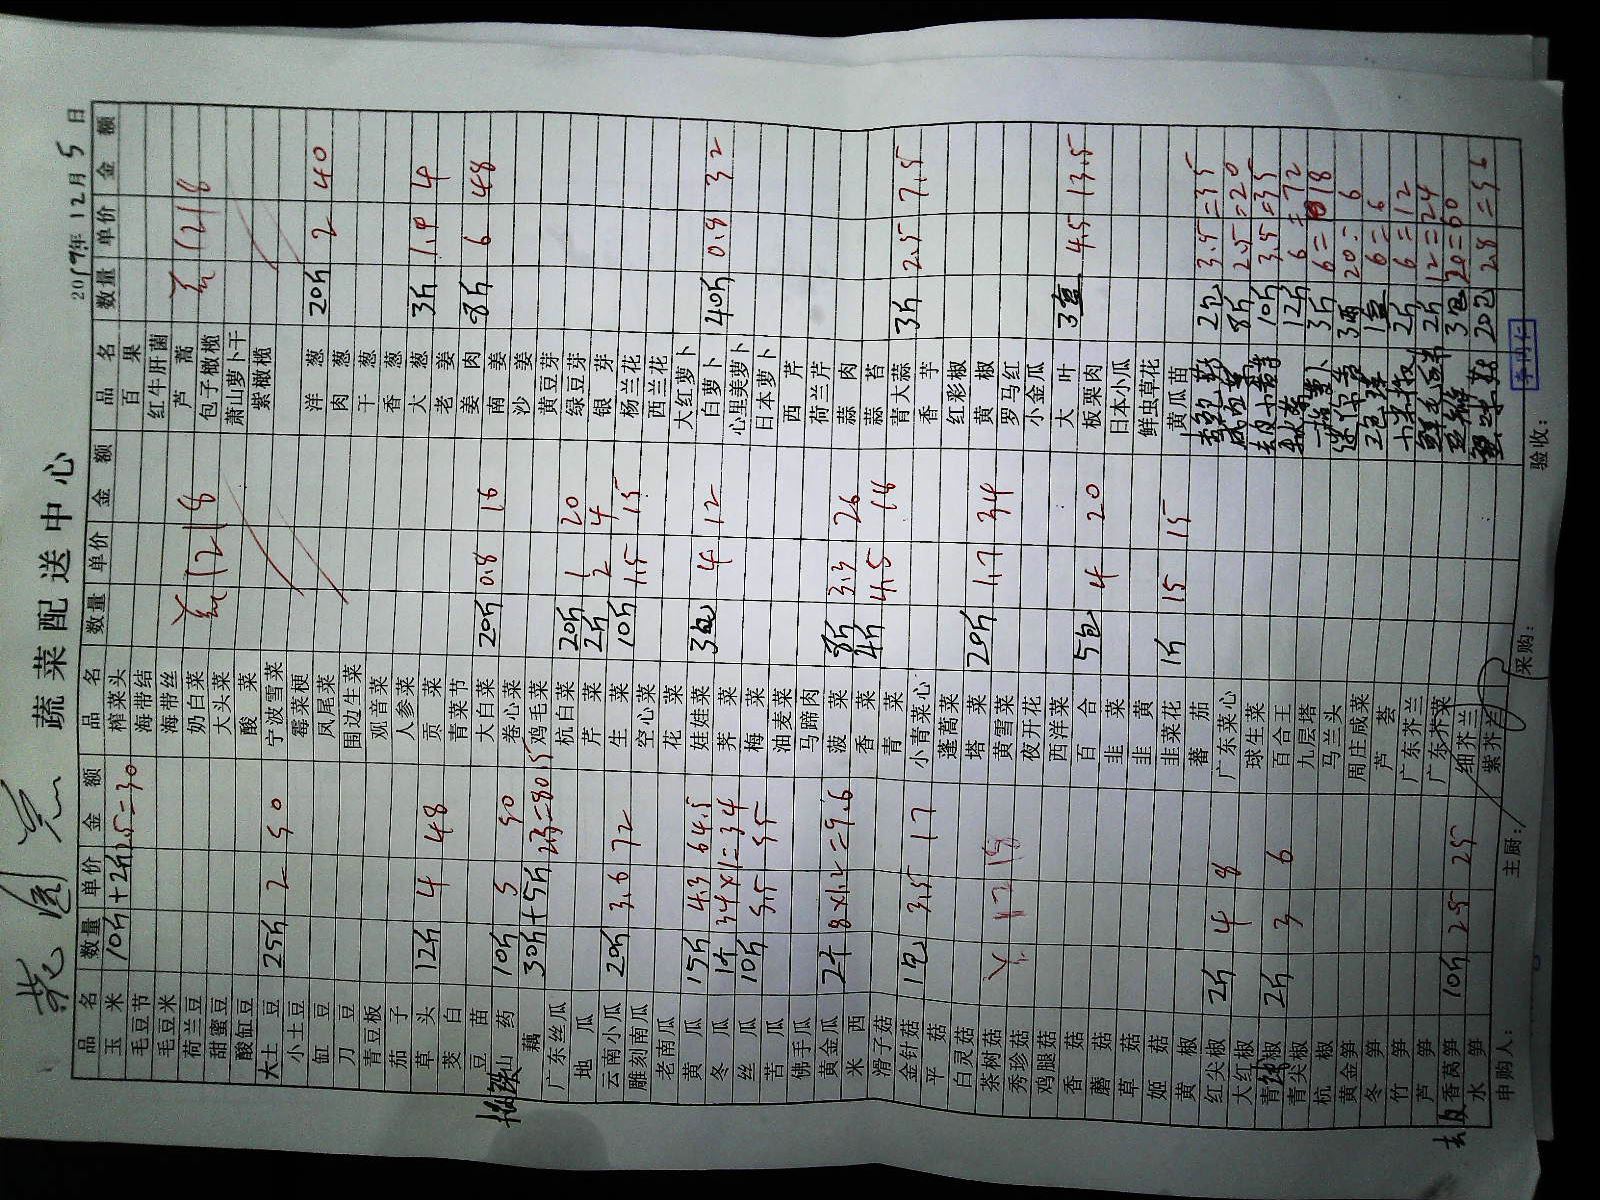 菜园 元
蔬菜配送中心
2019年12月5日
品名 数量 单价 金额
玉米 10斤+2斤 2.5=30
毛豆节
毛豆米
荷兰豆
甜蜜豆
酸缸豆
大土豆 25斤 2 50
小土豆
缸豆
刀豆
青豆板
茄子
草头 12斤 4 48
茭白
豆苗
山药 10斤 5 50
藕 30斤+5斤
广东丝瓜
地瓜
云南小瓜 20斤 3.6 72
雕刻南瓜
老南瓜
黄瓜 15斤 4.3 64.5
冬瓜 1个 34×1=34
丝瓜 10斤 5.5 55
苦瓜
佛手瓜
黄金瓜 2个 8×1.2=9.6
米西
滑子菇
金针菇 1包 3.5 17
平菇
白灵菇
茶树菇
秀珍菇
鸡腿菇
香菇
蘑菇
草菇
姬菇
黄椒
红尖椒 2斤 4 8
大红椒
青椒 2斤 3 6
青尖椒
杭椒
黄金笋
冬笋
竹笋
芦笋
去皮香莴笋 10斤 2.5 25
水笋
品名 数量 单价 金额
榨菜头
海带结
海带丝
奶白菜
大头菜
酸菜
宁波雪菜
霉菜梗
凤尾菜
围边生菜
观音菜
人参菜
贡菜
青菜节
大白菜 20斤 0.8 16
卷心菜
鸡毛菜
杭白菜 20斤 1 20
芹菜 2斤 2 4
生菜 10斤 1.5 15
空心菜
花菜
娃娃菜 3包 4 12
荠菜
梅菜
油麦菜
马蹄肉
菠菜 8斤 3.3 26
香菜 4斤 4.5 18
青菜
小青菜心
蓬蒿菜
塔菜 20斤 1.7 34
黄雪菜
夜开花
西洋菜
百合 5包 4 20
韭菜
韭黄
韭菜花 1斤 15 15
蕃茄
广东菜心
球生菜
百合王
九层塔
马兰头
周庄咸菜
芦荟
广东芥兰
广东芥菜
细芥兰
紫芥兰
品名 数量 单价 金额
百果
红牛肝菌
芦蒿
包子橄榄
萧山萝卜干
紫橄榄
洋葱 20斤 2 40
肉葱
干葱
香葱
大葱 3斤 1.9 4
老姜
姜肉 8斤 6 48
南姜
沙姜
黄豆芽
绿豆芽
银芽
杨兰花
西兰花
大红萝卜
白萝卜 40斤 0.8 32
心里美萝卜
日本萝卜
西芹
荷兰芹
蒜肉
蒜苔
青大蒜 3斤 2.5 7.5
香芋
红彩椒
黄椒
罗马红
小金瓜
大叶 3盒 4.5 13.5
板栗肉
日本小瓜
鲜虫草花
黄瓜苗
2包 3.5=35
8斤 2.5=20
10斤 3.5=35
12斤 6=72
3斤 6=18
20=6
1盒 6=6
2斤 6=12
2斤 12=24
3包 20=60
20包 2.8=56
申购人： 主厨： 采购： 验收：